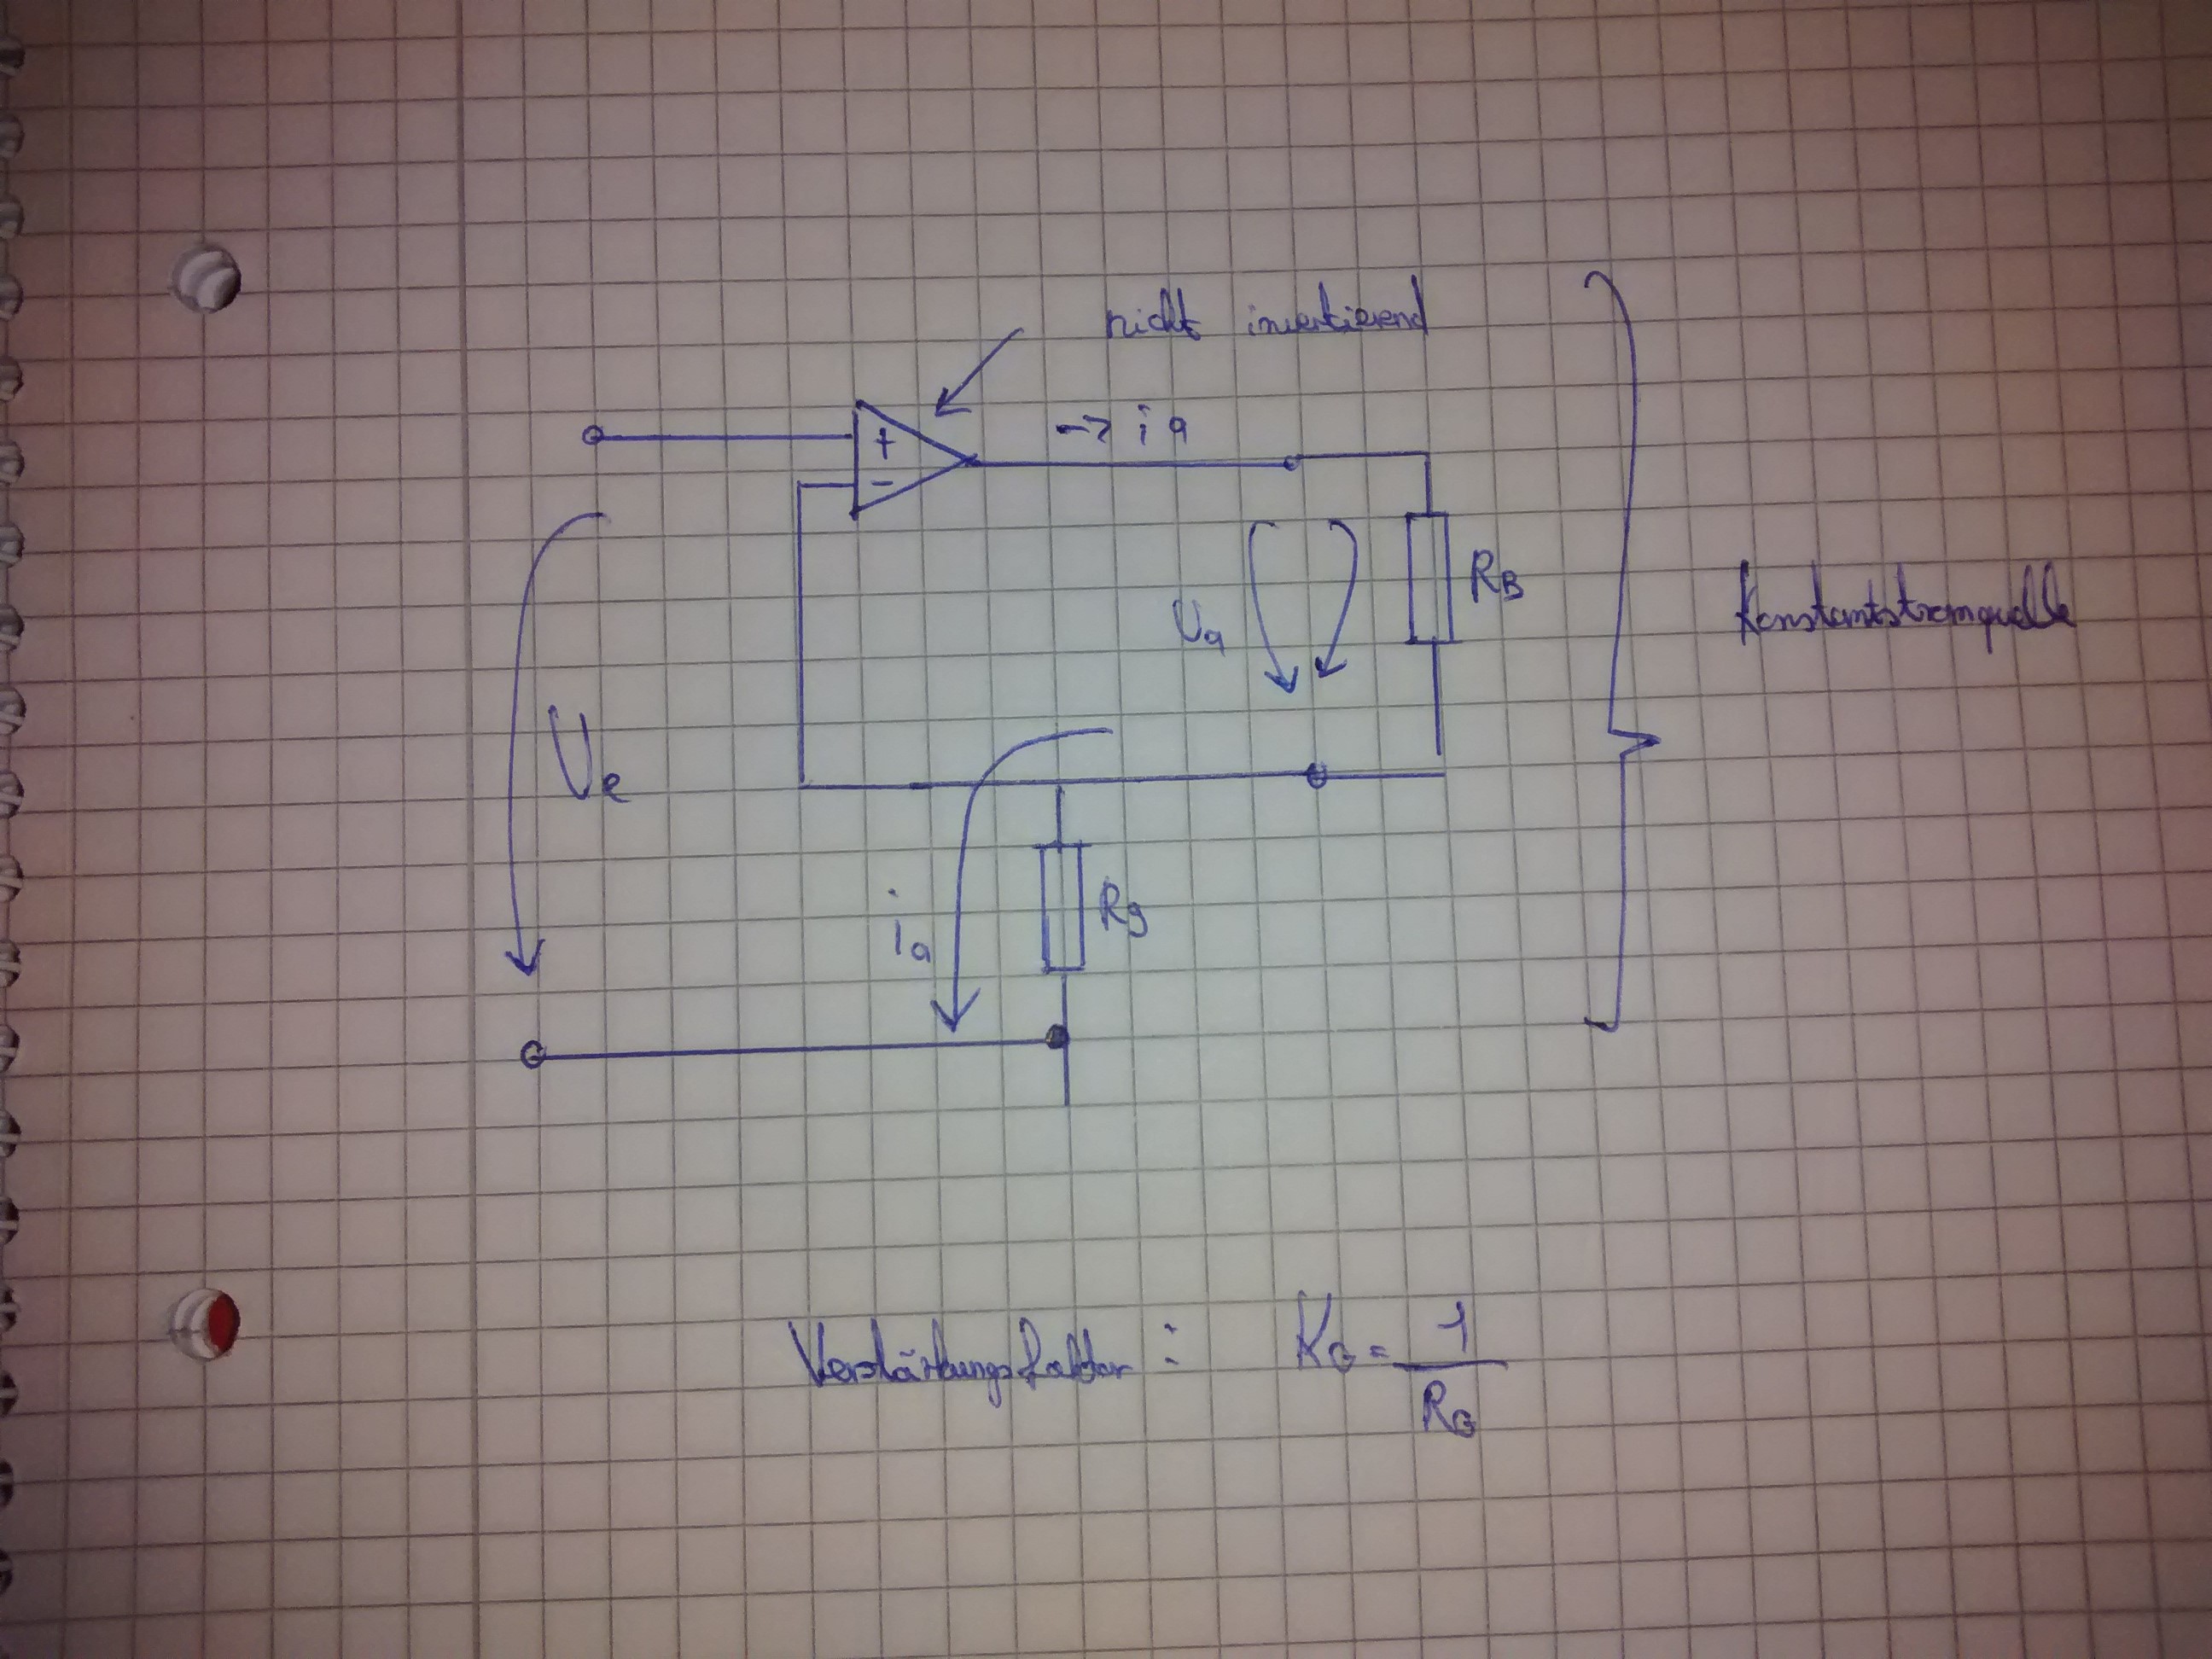 nicht invertierend
+
-> ia
-
RB
Ua
Konstantstromquelle
Ue
ia
Rg
Verstärkungsfaktor : KG = 1
RG